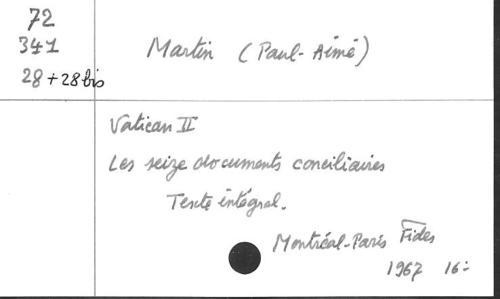 72
341
28 + 28 bis
Martin (Paul-Aimé)
Vatican II
Les seize documents conciliaires
Texte intégral.
Montréal-Paris Fides
1967 16: